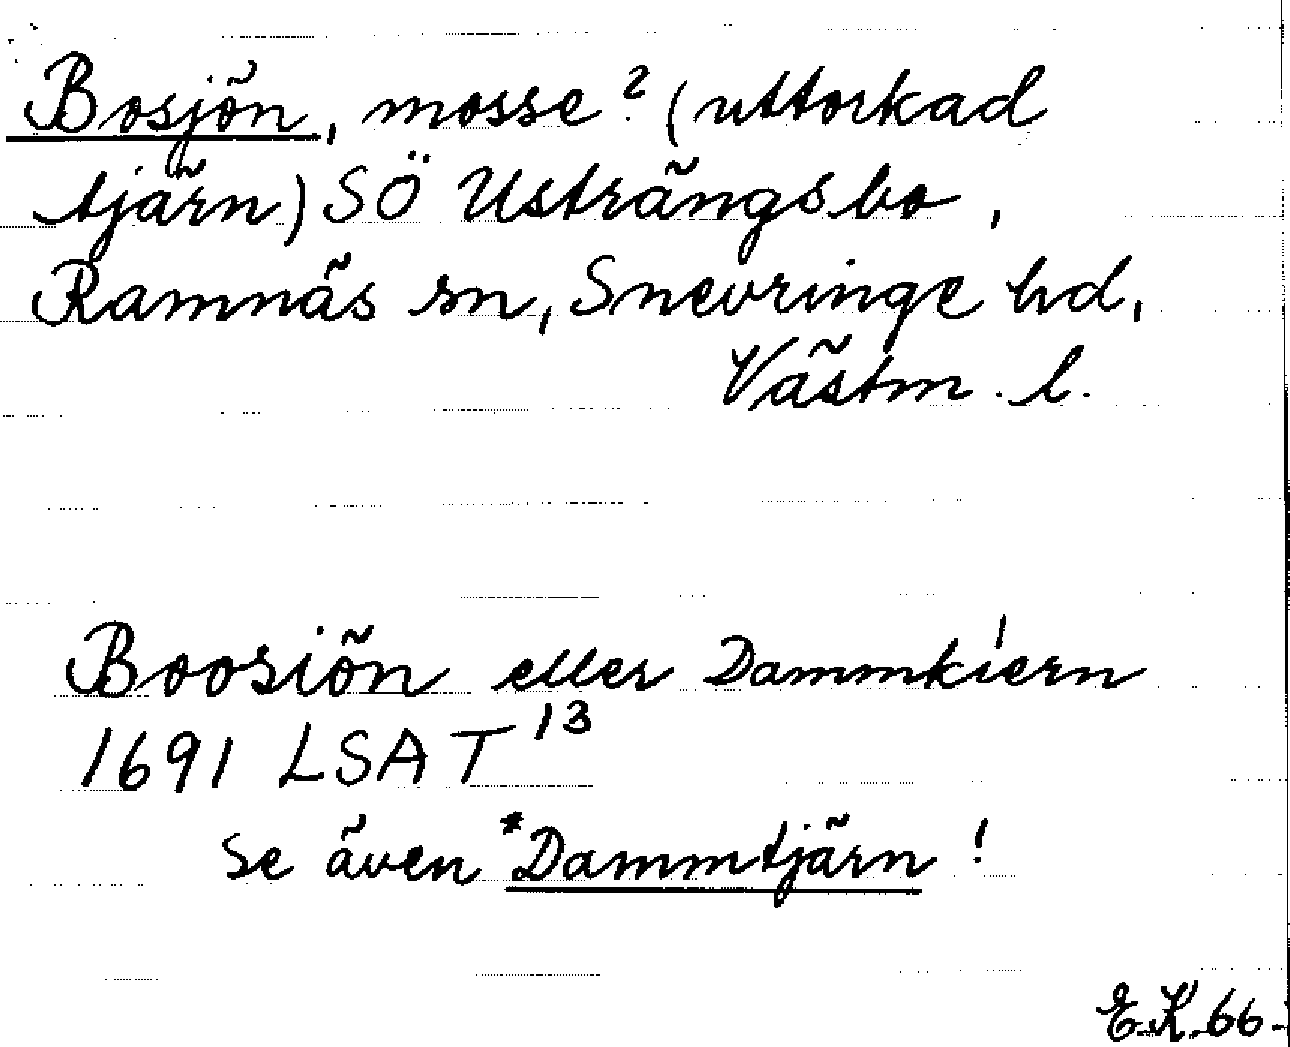 Bosjön, mosse? (uttorkad
tjärn) SÖ Usträngsbo,
Ramnäs sn, Snevringe hd,
Västm. l.
Boosiön eller Dammkiern
1691 LSA T 13
se även *Dammtjärn!
E.K. 66.